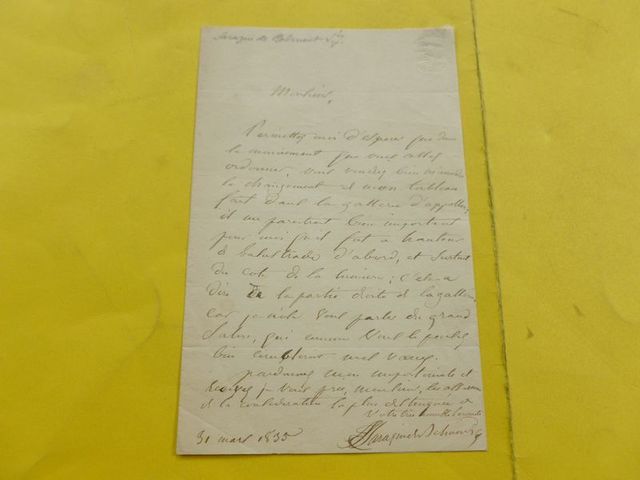 Sarazin de Belmont
Monsieur,
Permettez moi d'espérer que dans
le mouvement que vous allez
ordonner, vous voudrez bien
le changement de mon tableau
fait dans la gallerie d'apollon,
il me paroitrait bien important
pour moi qu'il fut a hauteur
de balustrade d'abord, et surtout
du coté de la lumiere; c'est-a
dire de la partie droite de la gallerie
car je n'ose vous parler du grand
Salon, qui comme vous le pensez
bien comblerait mes vœux.
pardonnez mon importunité et
recevez je vous prie, monsieur, les
de la consideration la plus distinguée de
Votre très humble servante
31 mars 1835 Sarazin de Belmont